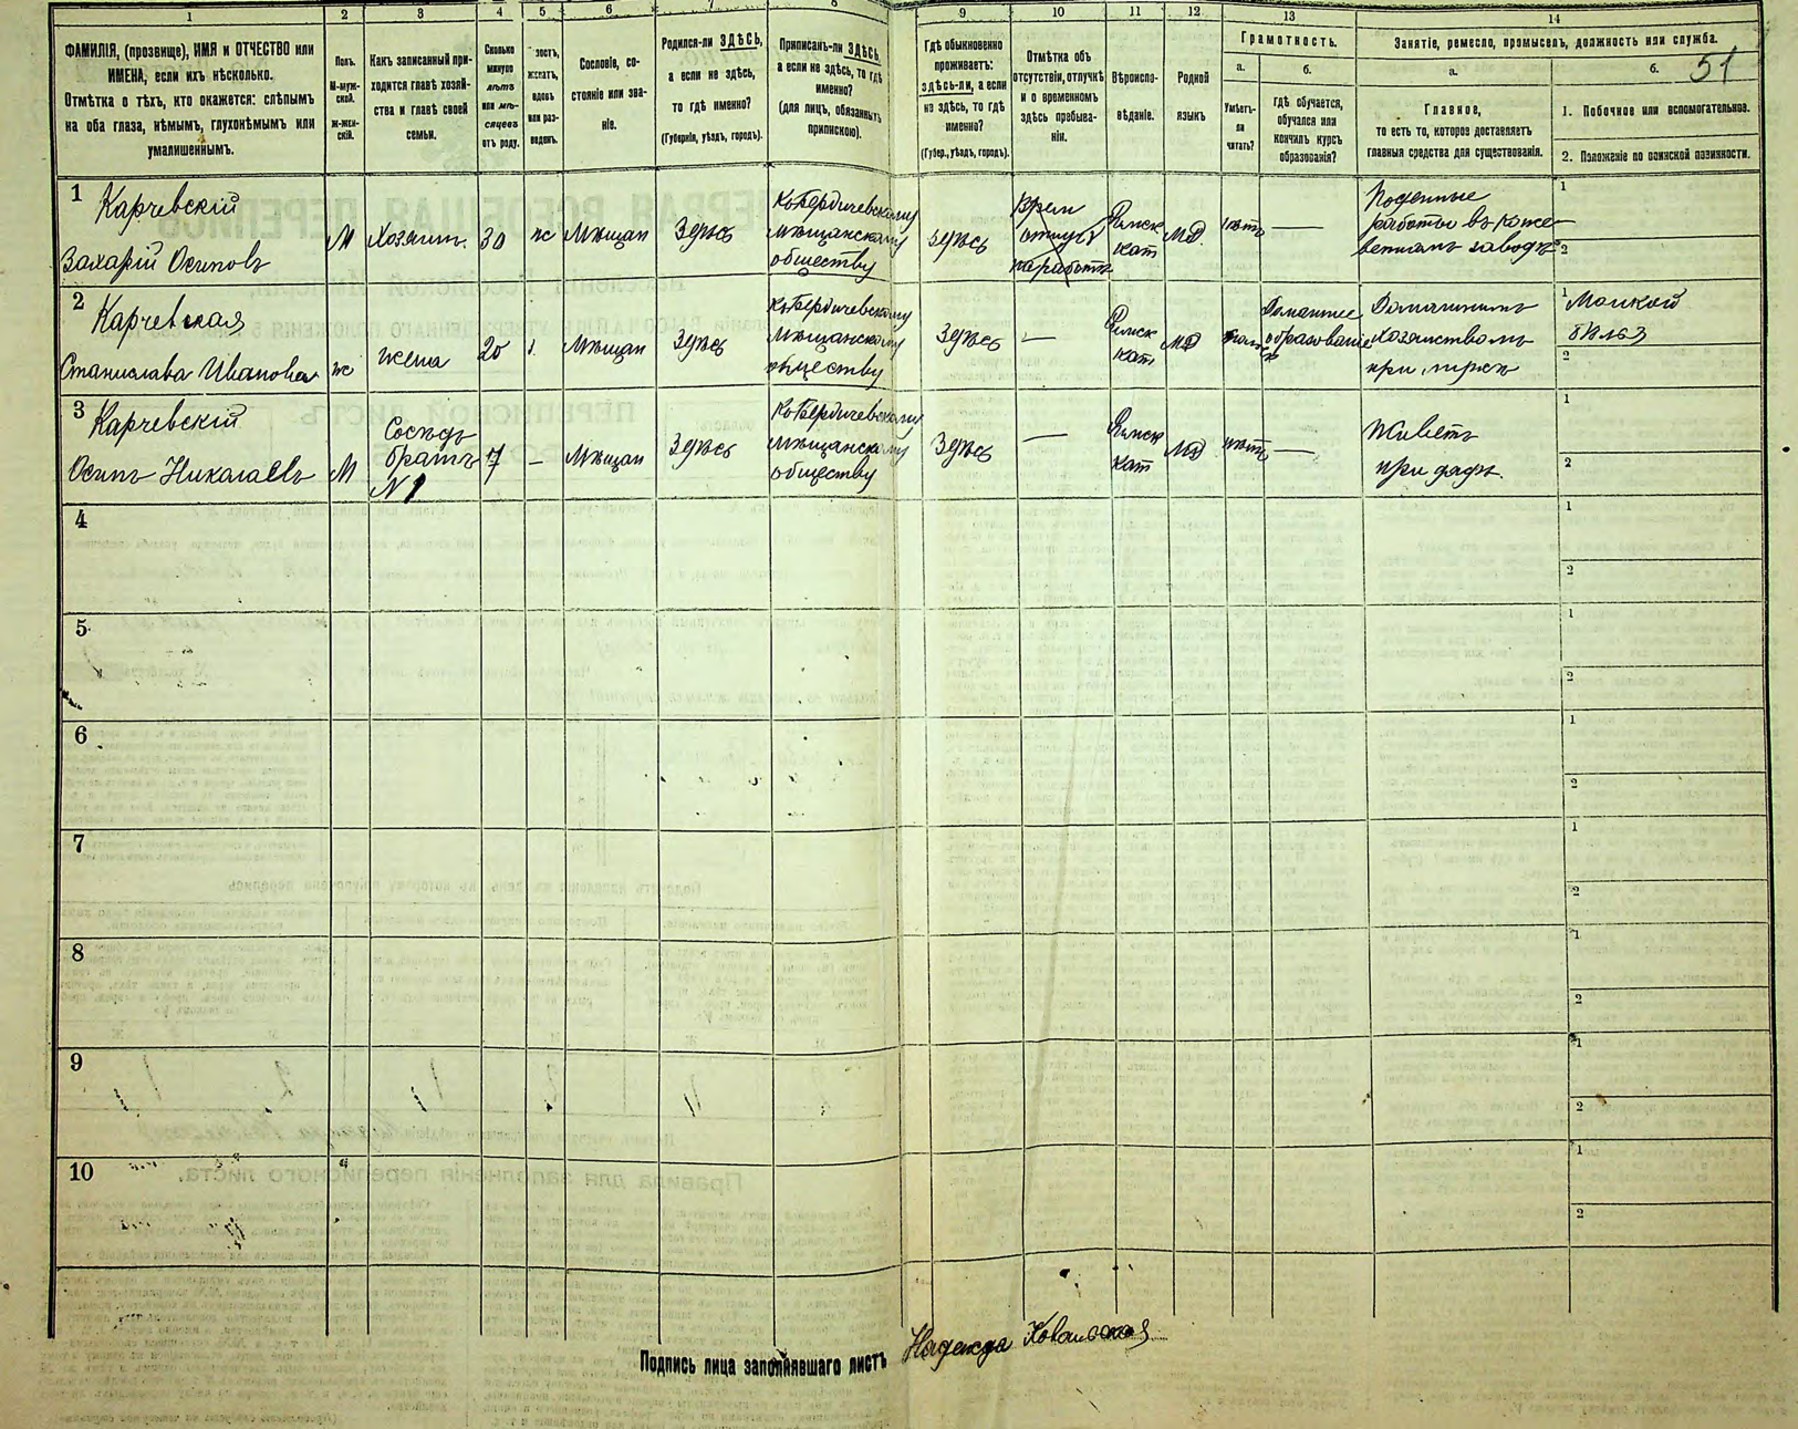 1 2 3 4 5 6 7 8 9 10 11 12 13 14
ФАМИЛІЯ, (прозвище), ИМЯ и ОТЧЕСТВО или
ИМЕНА, если ихъ нѣсколько.
Отмѣтка о тѣхъ, кто окажется: слѣпымъ
на оба глаза, нѣмымъ, глухонѣмымъ или
умалишеннымъ.
Полъ.
М-муж-
ской.
Ж-жен-
скій.
Какъ записанный при-
ходится главѣ хозяй-
ства и главѣ своей
семьи.
Сколько
минуло
лѣтъ
или мѣ-
сяцевъ
отъ роду.
лостъ,
женатъ,
вдовъ
или раз-
веденъ.
Сословіе, со-
стояніе или зва-
ніе.
Родился-ли ЗДѢСЬ,
а если не здѣсь,
то гдѣ именно?
(Губернія, уѣздъ, городъ).
Приписанъ-ли ЗДѢСЬ,
а если не здѣсь, то гдѣ
именно?
(для лицъ, обязанныхъ
припискою).
Гдѣ обыкновенно
проживаетъ:
здѣсь-ли, а если
не здѣсь, то гдѣ
именно?
(Губер., уѣздъ, городъ).
Отмѣтка объ
отсутствіи, отлучкѣ
и о временномъ
здѣсь пребыва-
ніи.
Вѣроиспо-
вѣданіе.
Родной
языкъ
Грамотность.
а.
Умѣетъ-
ли
читать?
б.
гдѣ обучается,
обучался или
кончилъ курсъ
образованія?
Занятіе, ремесло, промыселъ, должность или служба.
а.
Главное,
то есть то, которое доставляетъ
главныя средства для существованія.
б.
51
1. Побочное или вспомогательное.
2. Положеніе по воинской повинности.
1
Карчевскій
Захарій Осиповъ
М
Хозяинъ
30
ж
Мѣщан
Здѣсь
Къ Бердичевскому
мѣщанскому
обществу
здѣсь
Врем
Римск
кат
нѣтъ
—
Поденные
работы въ коже-
венномъ заводѣ
1
2
2
Карчевская
Станислава Иванова
ж
жена
20
з.
Мѣщан
Здѣсь
Къ Бердичевскому
мѣщанскому
обществу
Здѣсь
—
Римск
кат
Домашнее
образованіе
при мужѣ
1
2
3
Карчевскій
Осипъ Николаевъ
М
братъ
N 1
7
—
Мѣщан
Здѣсь
Къ Бердичевскому
мѣщанскому
обществу
Здѣсь
—
Римск
кат
нѣтъ
—
Живетъ
при дядѣ.
1
2
4
1
2
5
1
2
6
1
2
7
1
2
8
1
2
9
1
2
10
1
2
Подпись лица заполнявшаго листъ Надежда Ковальская